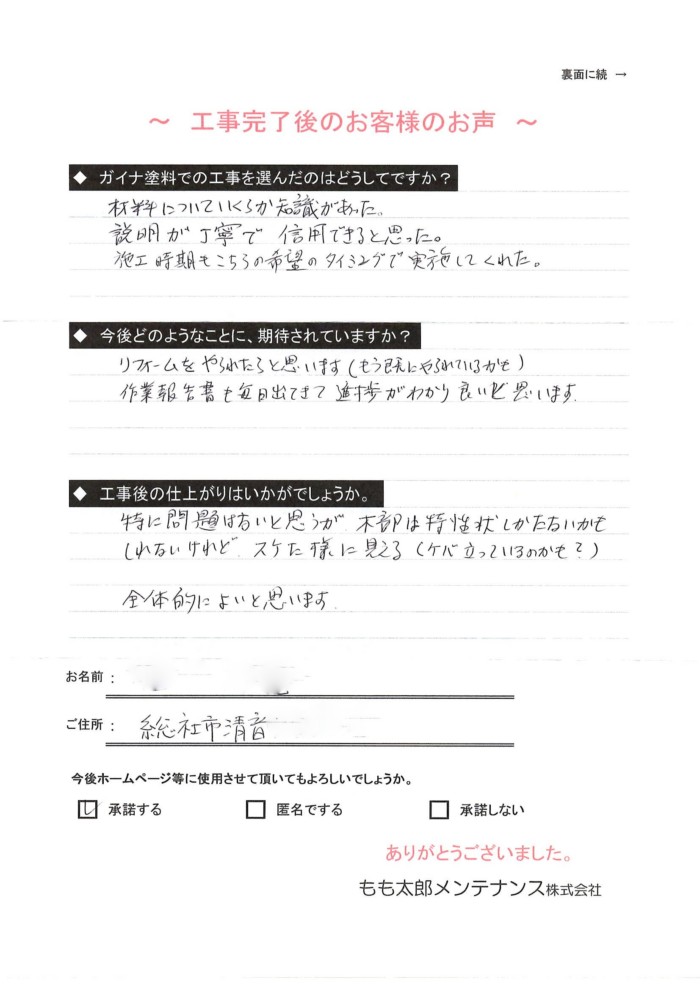 裏面に続 →
～ 工事完了後のお客様のお声 ～
◆ ガイナ塗料での工事を選んだのはどうしてですか？
材料についていくらか知識があった。
説明が丁寧で 信用できると思った。
施工時期もこちらの希望のタイミングで実施してくれた。
◆ 今後どのようなことに、期待されていますか？
リフォームをやられたらと思います(もう既にやられているかも)
作業報告書も毎日出てきて 進捗がわかり良いと思います.
◆ 工事後の仕上がりはいかがでしょうか。
特に問題はないと思うが 木部は特性状しかたないかも
しれないけれど スケた様に見える (ケバ立っているのかも?)
全体的によいと思います.
お名前：
ご住所： 総社市清音
今後ホームページ等に使用させて頂いてもよろしいでしょうか。
承諾する 匿名でする 承諾しない
ありがとうございました。
もも太郎メンテナンス株式会社